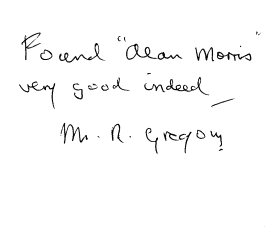 Found "Alan Morris"
very good indeed
Mr. R. Gregory